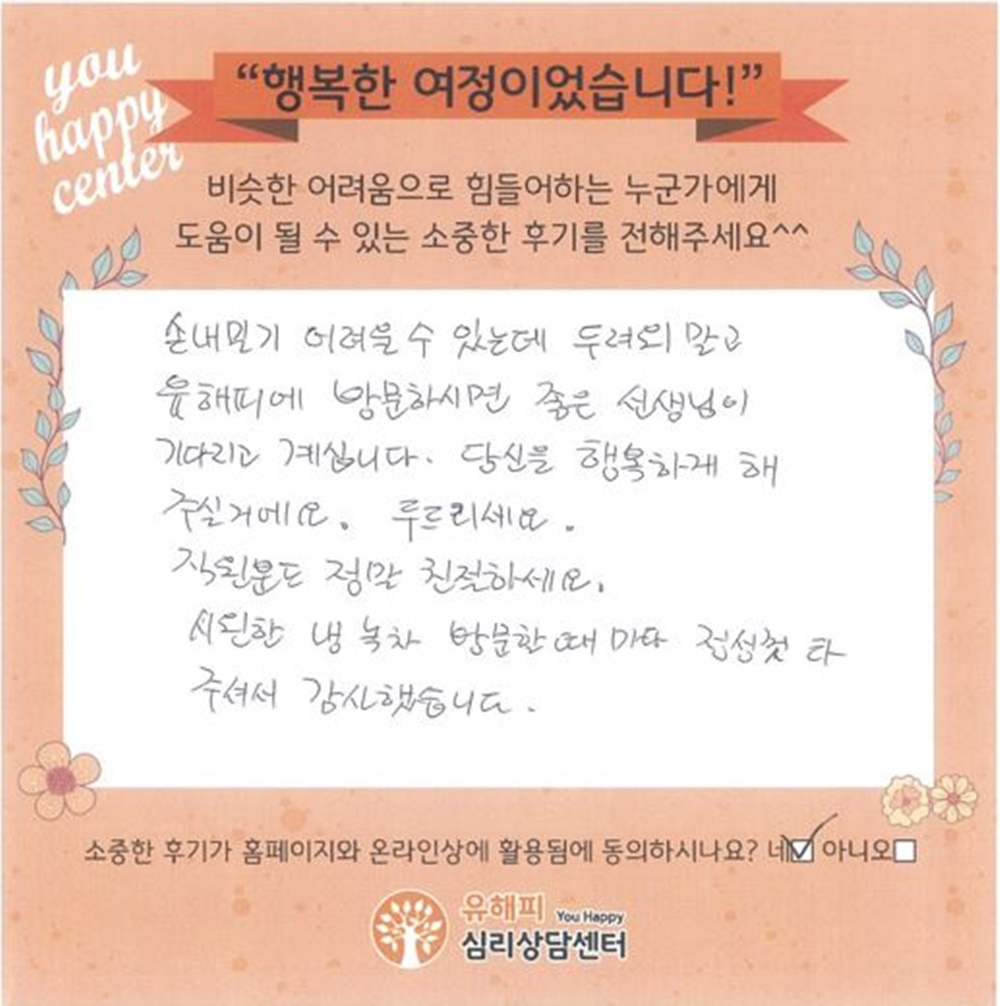 you
happy
center
“행복한 여정이었습니다!”
비슷한 어려움으로 힘들어하는 누군가에게
도움이 될 수 있는 소중한 후기를 전해주세요^^
손내밀기 어려울 수 있는데 두려워 말고
유해피에 방문하시면 좋은 선생님이
기다리고 계십니다. 당신을 행복하게 해
주실거에요. 두드리세요.
직원분도 정말 친절하세요.
시원한 냉 녹차 방문한 때 마다 정성껏 타
주셔서 감사했습니다.
소중한 후기가 홈페이지와 온라인상에 활용됨에 동의하시나요? 네☑ 아니오☐
유해피 You Happy
심리상담센터